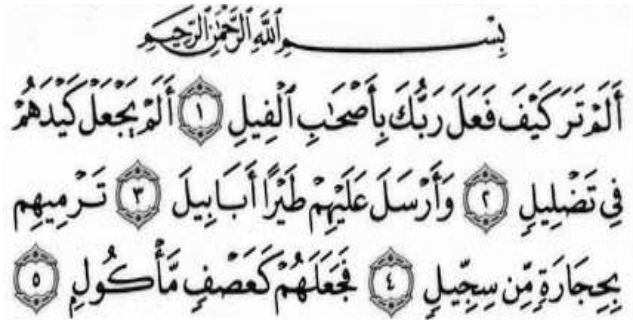 بِسْمِ اللَّهِ الرَّحْمَٰنِ الرَّحِيمِ
أَلَمْ تَرَ كَيْفَ فَعَلَ رَبُّكَ بِأَصْحَابِ الْفِيلِ ١ أَلَمْ يَجْعَلْ كَيْدَهُمْ
فِي تَضْلِيلٍ ٢ وَأَرْسَلَ عَلَيْهِمْ طَيْرًا أَبَابِيلَ ٣ تَرْمِيهِم
بِحِجَارَةٍ مِّن سِجِّيلٍ ٤ فَجَعَلَهُمْ كَعَصْفٍ مَّأْكُولٍ ٥